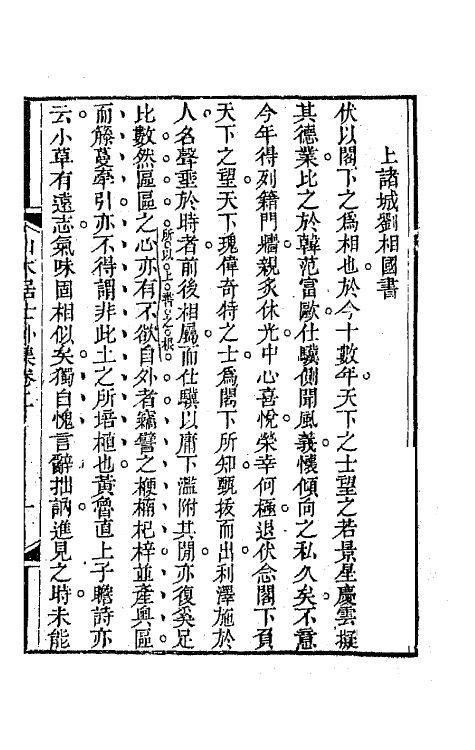 上諸城劉相國書
伏以閣下之爲相也於今十數年天下之士望之若景星慶雲擬
其德業比之於韓范富歐仕驥側聞風義懷傾向之私久矣不意
今年得列籍門牆親炙休光中心喜悅榮幸何極退伏念閣下負
天下之望天下瑰偉奇特之士爲閣下所知甄拔而出利澤施於
人名聲垂於時者前後相屬而仕驥以庸下濫附其閒亦復奚足
比數然區區之心亦有不欲自外者竊譬之楩楠杞梓並產輿區
所以上書之根
而籐蔓牽引亦不得謂非此土之所培植也黃魯直上子瞻詩亦
云小草有遠志氣味固相似矣獨自愧言辭拙訥進見之時未能
山木居士外集卷二